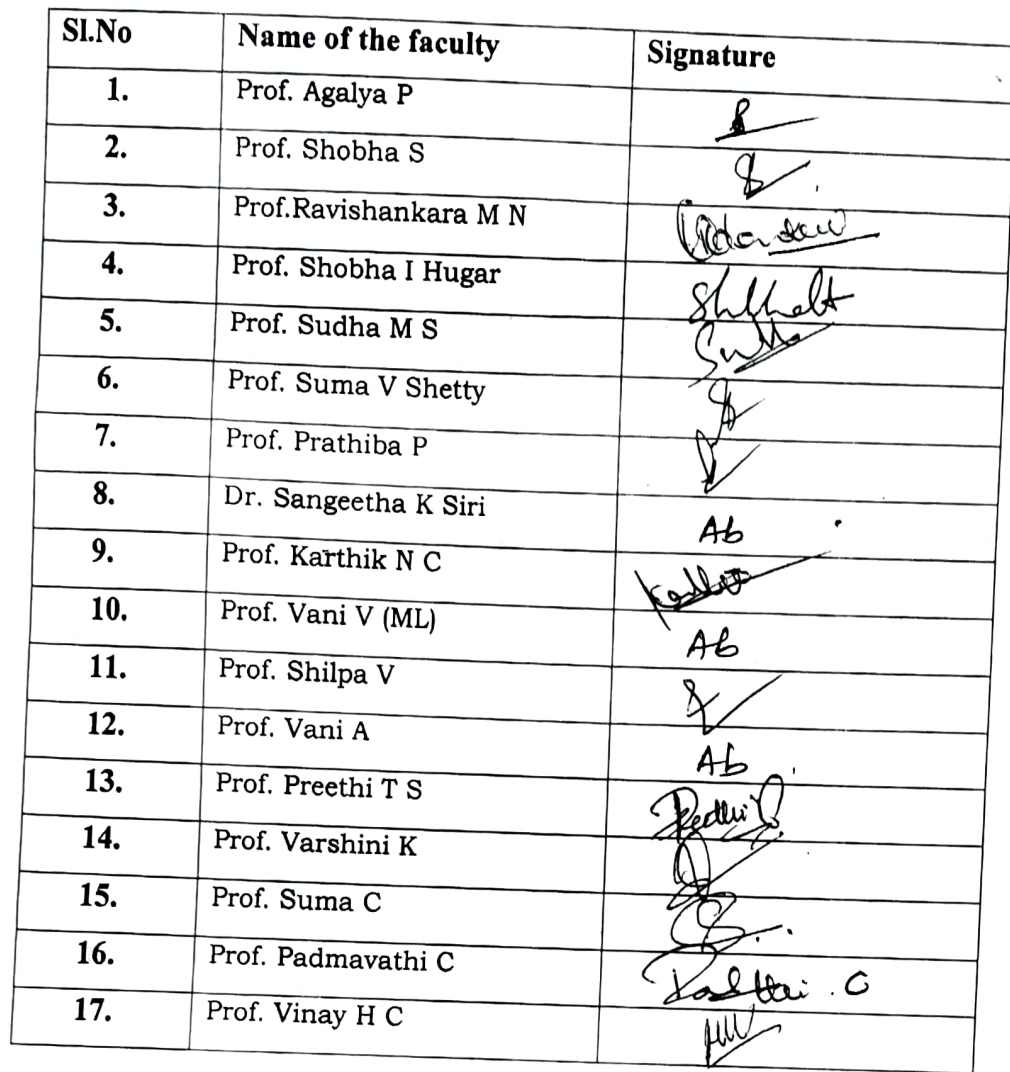 Sl.No Name of the faculty Signature
1. Prof. Agalya P
2. Prof. Shobha S
3. Prof.Ravishankara M N
4. Prof. Shobha I Hugar
5. Prof. Sudha M S
6. Prof. Suma V Shetty
7. Prof. Prathiba P
8. Dr. Sangeetha K Siri Ab
9. Prof. Karthik N C
10. Prof. Vani V (ML) Ab
11. Prof. Shilpa V
12. Prof. Vani A Ab
13. Prof. Preethi T S
14. Prof. Varshini K
15. Prof. Suma C
16. Prof. Padmavathi C
17. Prof. Vinay H C